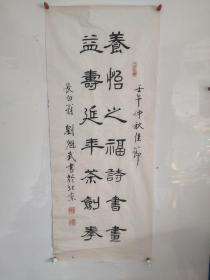 養怡之福詩書畫
益壽延年茶劍拳
壬午仲秋佳節
長白翁劉魁武書於北京